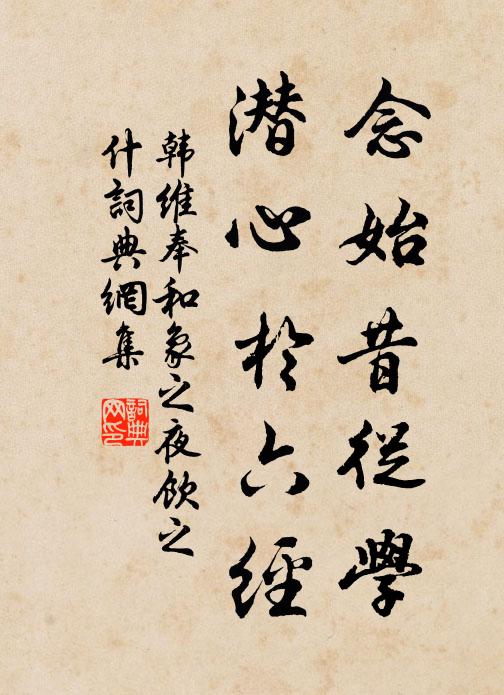 念始昔從學
潜心於六經
韓維奉和象之夜飲之
什詞典網集
詞典
网印